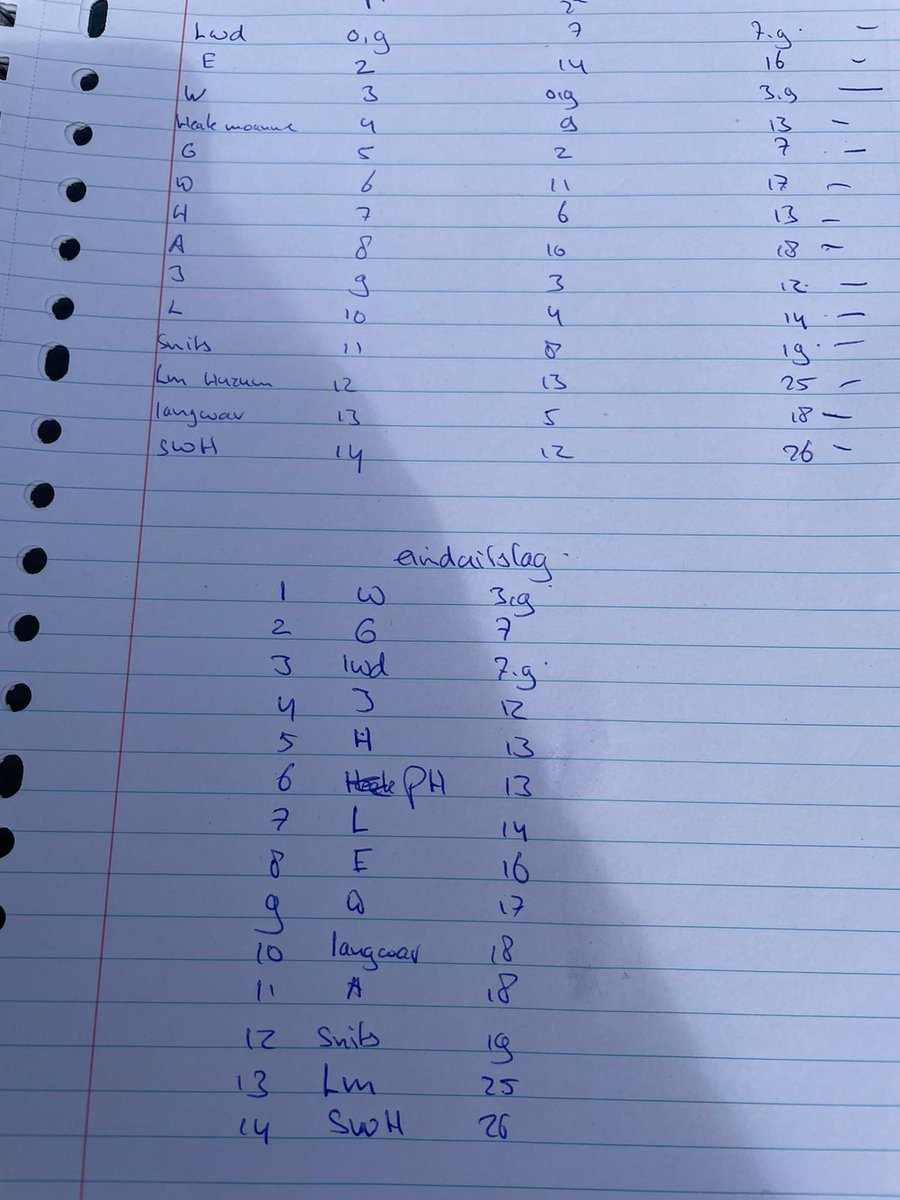 2
Lwd 0,9 7 7.9. –
E 2 14 16 –
W 3 0,9 3.9 –
Heale moanne 4 9 13 –
G 5 2 7 –
W 6 11 17 –
H 7 6 13 –
A 8 10 18 –
J 9 3 12 –
L 10 4 14 –
Snits 11 8 19 –
Lm Huzum 12 13 25 –
langwar 13 5 18 –
SWH 14 12 26 –
eindaitslag
1 W 3,9
2 G 7
3 lwd 7.9
4 J 12
5 H 13
6 PH 13
7 L 14
8 E 16
9 17
10 langwar 18
11 A 18
12 Snits 19
13 Lm 25
14 SWH 26